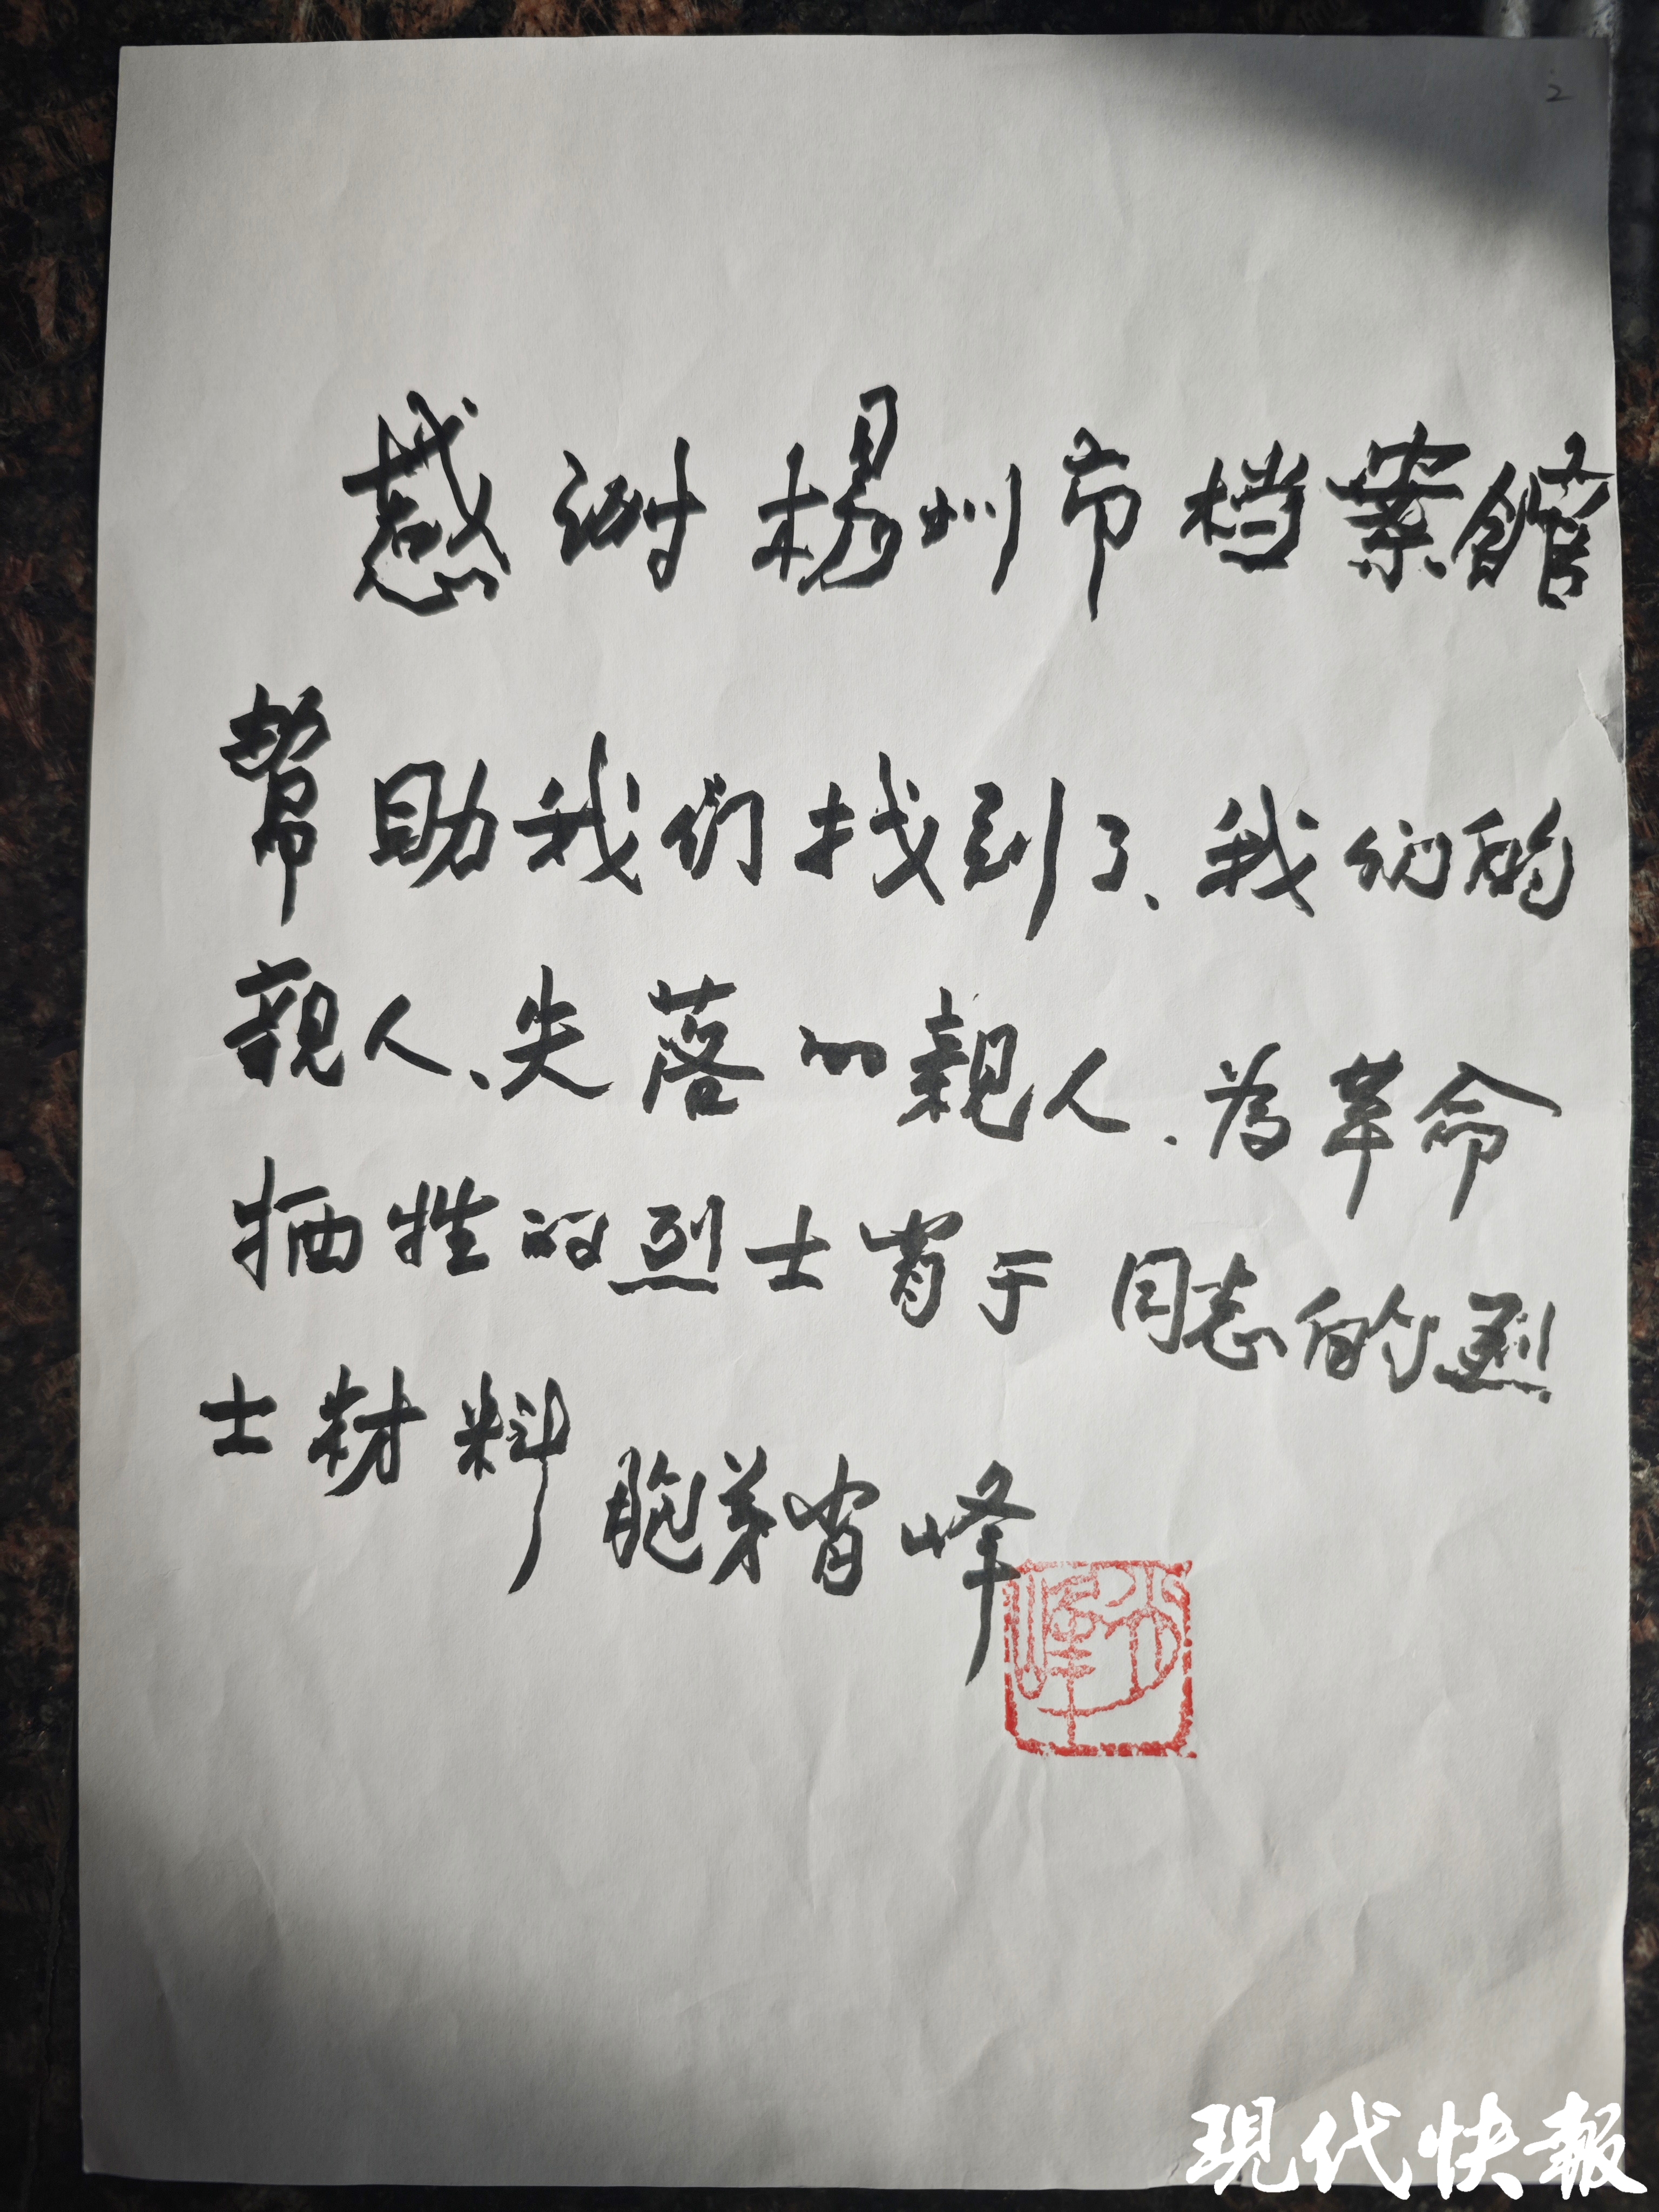 2
感谢楊州市档案館
帮助我们找到了、我们的
親人、失落的親人、为革命
牺牲的烈士肖于同志的烈
士材料
胞弟肖峰
肖峰
現代快報